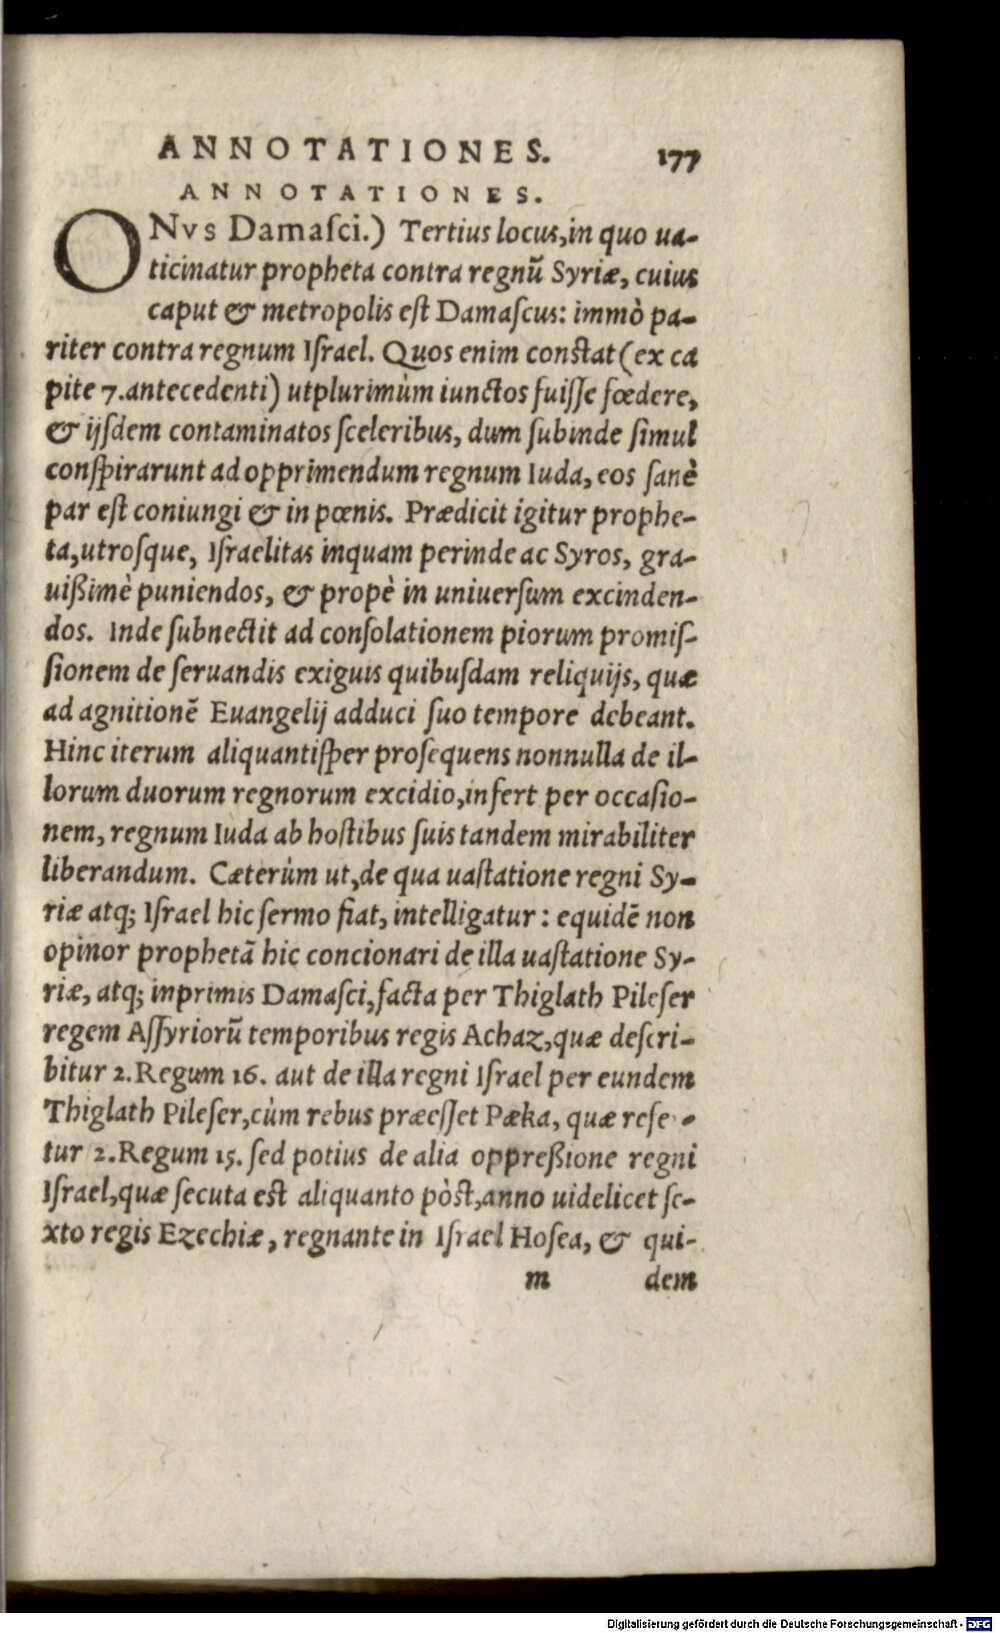 ANNOTATIONES. 177
ANNOTATIONES.
ONVS Damaſci.) Tertius locus,in quo ua-
ticinatur propheta contra regnũ Syriæ, cuius
caput & metropolis eſt Damaſcus: immò pa-
riter contra regnum Iſrael. Quos enim conſtat (ex ca
pite 7.antecedenti) utplurimùm iunctos fuiſſe fœdere,
& ijſdem contaminatos ſceleribus, dum ſubinde ſimul
conſpirarunt ad opprimendum regnum Iuda, eos ſanè
par eſt coniungi & in pœnis. Prædicit igitur prophe-
ta,utroſque, Iſraelitas inquam perinde ac Syros, gra-
uißimè puniendos, & propè in uniuerſum excinden-
dos. Inde ſubnectit ad conſolationem piorum promiſ-
ſionem de ſeruandis exiguis quibuſdam reliquijs, quæ
ad agnitionẽ Euangelij adduci ſuo tempore debeant.
Hinc iterum aliquantiſper proſequens nonnulla de il-
lorum duorum regnorum excidio,infert per occaſio-
nem, regnum Iuda ab hoſtibus ſuis tandem mirabiliter
liberandum. Cæterùm ut,de qua uaſtatione regni Sy-
riæ atq; Iſrael hic ſermo fiat, intelligatur: equidẽ non
opinor prophetã hic concionari de illa uaſtatione Sy-
riæ, atq; inprimis Damaſci,facta per Thiglath Pileſer
regem Aſſyriorũ temporibus regis Achaz,quæ deſcri-
bitur 2.Regum 16. aut de illa regni Iſrael per eundem
Thiglath Pileſer,cùm rebus præeſſet Pæka, quæ refe-
tur 2.Regum 15. ſed potius de alia oppreßione regni
Iſrael,quæ ſecuta eſt aliquanto pòſt,anno uidelicet ſe-
xto regis Ezechiæ, regnante in Iſrael Hoſea, & qui-
m dem
Digitalisierung gefördert durch die Deutsche Forschungsgemeinschaft - DFG